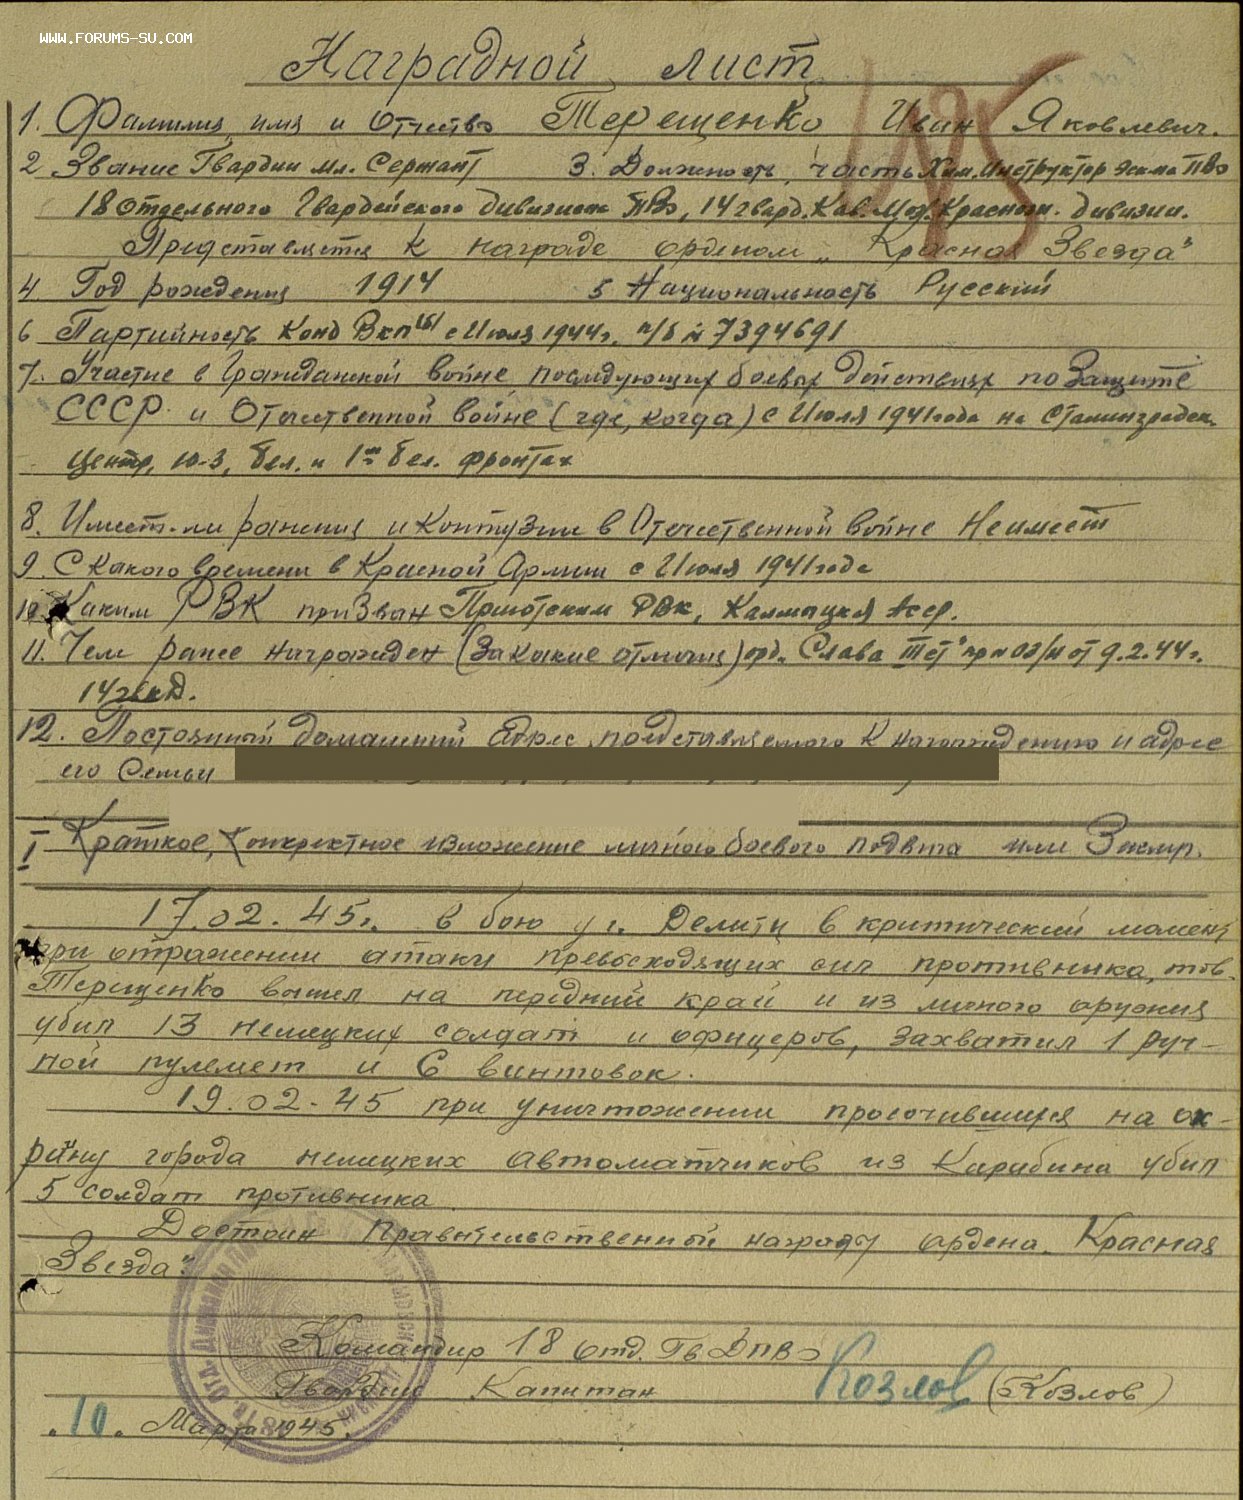 WWW.FORUMS-SU.COM
Наградной лист
1. Фамилия, имя и Отчество Терещенко Иван Яковлевич.
2 Звание Гвардии мл. Сержант 3. Должность, часть Хим. Инструктор эск-на ПВО
18 Отдельного Гвардейского дивизиона ПВО, 14 гвард. Кав. Моз. Красноз. дивизии.
Представляется к награде орденом „Красная Звезда"
4 Год рождения 1914 5 Национальность Русский
6 Партийность Канд ВКП(б) с Июля 1944г. п/б № 7394691
7. Участие в Гражданской войне, последующих боевых действиях по Защите
СССР и Отечественной войне (где, когда) с Июля 1941 года на Сталинградск.
Центр, Ю-З, Бел. и 1м Бел. фронтах
8. Имеет-ли ранения и контузии в Отечественной войне Не имеет
9. С какого времени в Красной Армии с Июля 1941 года
10. Каким РВК призван РВК, Калмыцкая Асср.
11. Чем ранее награжден (за какие отличия) орд. Слава IIIст пр № 03/н от 9.2.44г.
14 гвкД.
12. Постоянный домашний адрес, представляемого к награждению и адрес
его Семьи
I Краткое, Конкретное изложение личного боевого подвига или Заслуг.
17.02.45г. в бою у г. Делитц в критический момент
при отражении атаки превосходящих сил противника, тов.
Терещенко вышел на передний край и из личного оружия
убил 13 немецких солдат и офицеров, захватил 1 руч-
ной пулемет и 6 винтовок.
19.02-45 при уничтожении просочившихся на ок-
раину города немецких автоматчиков из Карабина убил
5 солдат противника
Достоин Правительственной награду ордена Красная
Звезда".
Командир 18 Отд. Гв ДПВО
Гвардии Капитан Козлов (Козлов)
"10" Марта 1945г.